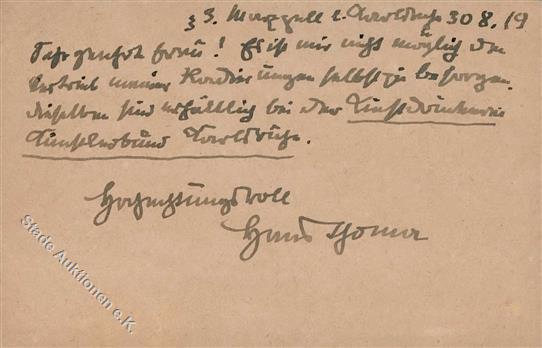 z. Z. Marxzell b. Karlsruhe 30 8. 19
Sehr geehrte Frau! Es ist mir nicht möglich den
Vertrieb meiner Radierungen selbst zu besorgen.
dieselben sind erhältlich bei der Kunstdruckerei
Künstlerbund Karlsruhe.
Hochachtungsvoll
Hans Thoma
Stade Auktionen e.K.